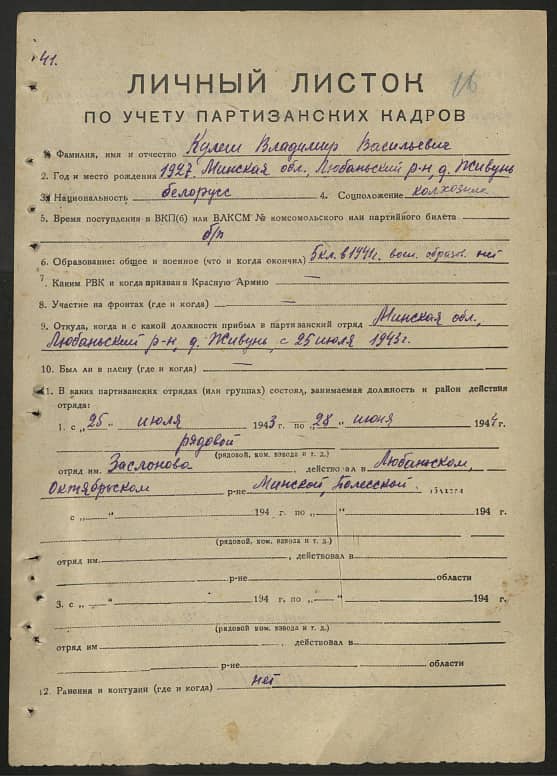 41.
16
ЛИЧНЫЙ ЛИСТОК
ПО УЧЕТУ ПАРТИЗАНСКИХ КАДРОВ
1. Фамилия, имя и отчество Кулеш Владимир Васильевич
2. Год и место рождения 1927. Минская обл., Любаньский р-н д. Живунь
3. Национальность белорусс 4. Соцположение колхозник
5. Время поступления в ВКП(б) или ВЛКСМ № комсомольского или партийного билета
б/п
6. Образование: общее и военное (что и когда окончил) 5 кл. в 1941г. воен. образов. нет
7. Каким РВК и когда призван в Красную Армию —
8. Участие на фронтах (где и когда) —
9. Откуда, когда и с какой должности прибыл в партизанский отряд Минская обл.,
Любаньский р-н, д. Живунь, с 25 июля 1943г.
10. Был ли в плену (где и когда) —
11. В каких партизанских отрядах (или группах) состоял, занимаемая должность и район действия
отряда:
1. с „25" июля 1943 г. по „28" июня 1944 г.
рядовой
(рядовой, ком. взвода и т. д.)
отряд им. Заслонова, действовал в Любаньском,
Октябрьском р-не Минской, Полесской. области
с „ " 194 г. по „ " 194 г.
(рядовой, ком. взвода и т. д.)
отряд им. , действовал в
р-не области
3. с „ " 194 г. по „ " 194 г.
(рядовой, ком. взвода и т. д.)
отряд им , действовал в
р-не области
12. Ранения и контузии (где и когда) нет